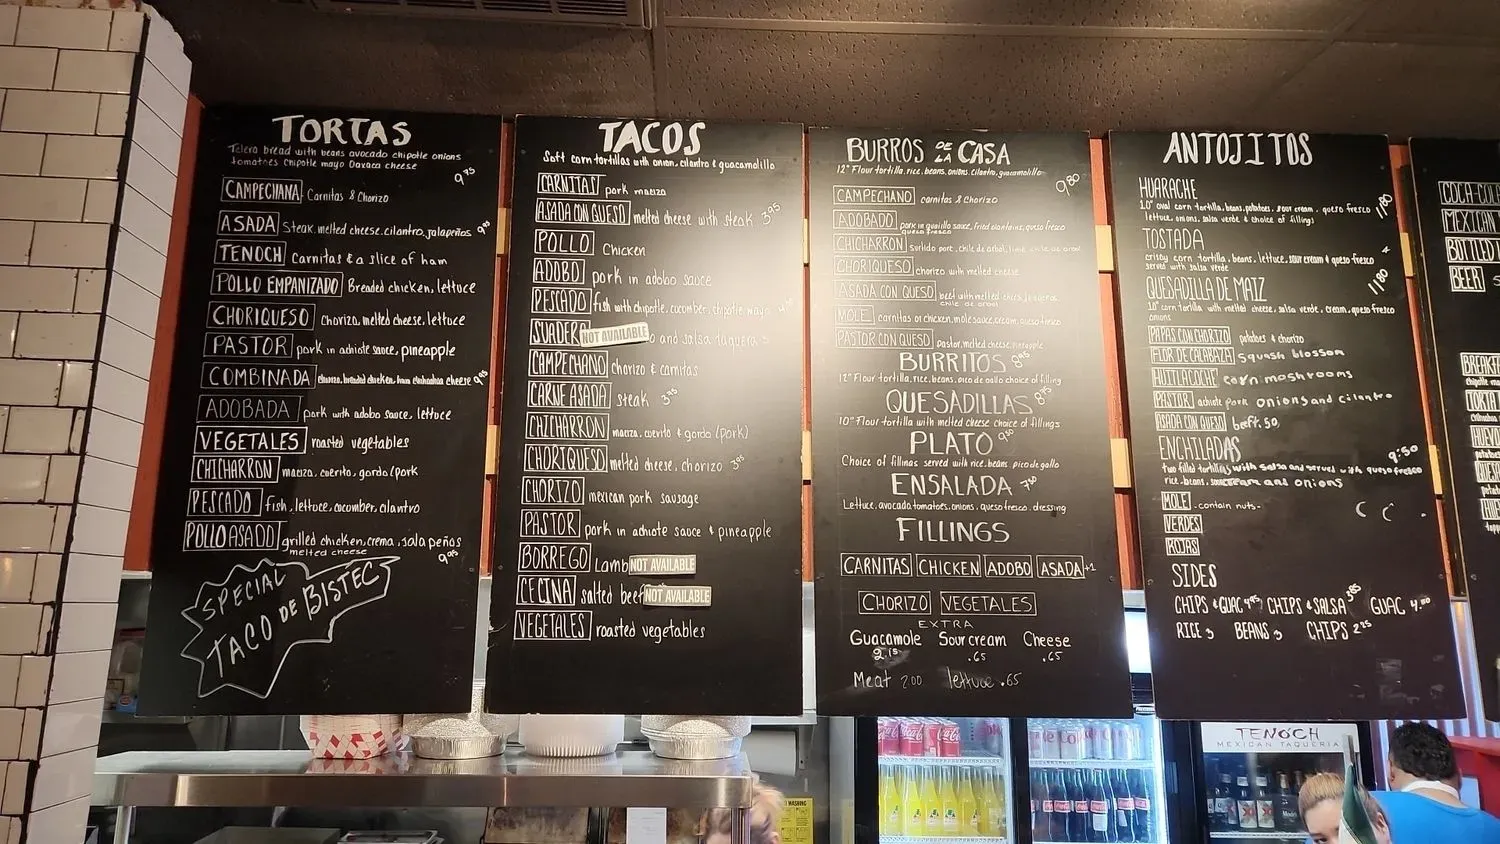 TORTAS
Telera bread with beans avocado chipotle onions
tomatoes chipotle mayo Oaxaca cheese
9.45
CAMPECHANA Carnitas & Chorizo
ASADA Steak, melted cheese, cilantro, jalapeños
TENOCH Carnitas & a slice of ham
POLLO EMPANIZADO Breaded chicken, lettuce
CHORIQUESO Chorizo, melted cheese, lettuce
PASTOR pork in achiote sauce, pineapple
COMBINADA chorizo, breaded chicken, ham chihuahua cheese
ADOBADA pork with adobo sauce, lettuce
VEGETALES roasted vegetables
CHICHARRON maciza, cuerito, gordo/pork
PESCADO fish, lettuce, cucumber, cilantro
POLLO ASADO grilled chicken, crema, jalapeños
melted cheese
SPECIAL
TACO DE BISTEC
TACOS
Soft corn tortillas with onion, cilantro & guacamolillo
CARNITAS pork maciza
ASADA CON QUESO melted cheese with steak 3.95
POLLO Chicken
ADOBO pork in adobo sauce
PESCADO fish with chipotle, cucumber, chipotle mayo
SUADERO NOT AVAILABLE and salsa taquera
CAMPECHANO chorizo & carnitas
CARNE ASADA steak 3.95
CHICHARRON maciza, cuerito & gordo (pork)
CHORIQUESO melted cheese, chorizo 3.95
CHORIZO mexican pork sausage
PASTOR pork in achiote sauce & pineapple
BORREGO Lamb NOT AVAILABLE
CECINA salted beef NOT AVAILABLE
VEGETALES roasted vegetables
BURROS DE LA CASA
12" Flour tortilla, rice, beans, onions, cilantro, guacamolillo
9.80
CAMPECHANO carnitas & Chorizo
ADOBADO pork in guajillo sauce, fried plantains, queso fresco
queso fresco
CHICHARRON Surtido pork, chile de arbol
CHORIQUESO chorizo with melted cheese
ASADA CON QUESO beef with melted cheese
chile de arbol
MOLE carnitas or chicken, mole sauce, cream, queso fresco
PASTOR CON QUESO Pastor, melted cheese, pineapple
BURRITOS 8.95
12" Flour tortilla, rice, beans, pico de gallo choice of filling
QUESADILLAS 8.95
10" Flour tortilla with melted cheese choice of fillings
PLATO 9.50
Choice of fillings served with rice, beans pico de gallo
ENSALADA 7.50
Lettuce, avocado, tomatoes, onions, queso fresco, dressing
FILLINGS
CARNITAS CHICKEN ADOBO ASADA +1
CHORIZO VEGETALES
EXTRA
Guacamole Sour cream Cheese
2.15 .65 .65
Meat 2.00 lettuce .65
ANTOJITOS
HUARACHE
10" oval corn tortilla, beans, potatoes, sour cream, queso fresco 11.80
lettuce, onions, salsa verde & choice of fillings
TOSTADA
crispy corn tortilla, beans, lettuce, sour cream & queso fresco 4
served with salsa verde
QUESADILLA DE MAIZ 11.80
10" corn tortilla with melted cheese, salsa verde, cream, queso fresco
onions
PAPAS CON CHORIZO potatoes & chorizo
FLOR DE CALABAZA Squash blossom
HUITLACOCHE corn mushrooms
PASTOR achiote pork onions and cilantro
ASADA CON QUESO
ENCHILADAS 9.50
two filled tortillas with salsa and served with queso fresco
rice, beans, sour cream and onions
MOLE -contain nuts-
VERDES
ROJAS
SIDES
CHIPS & GUAC 4.95 CHIPS & SALSA 3.85 GUAC 4.00
RICE 3 BEANS 3 CHIPS 2.25
COCA-COLA
MEXICAN
BOTTLED
BEER
TENOCH
MEXICAN TAQUERIA